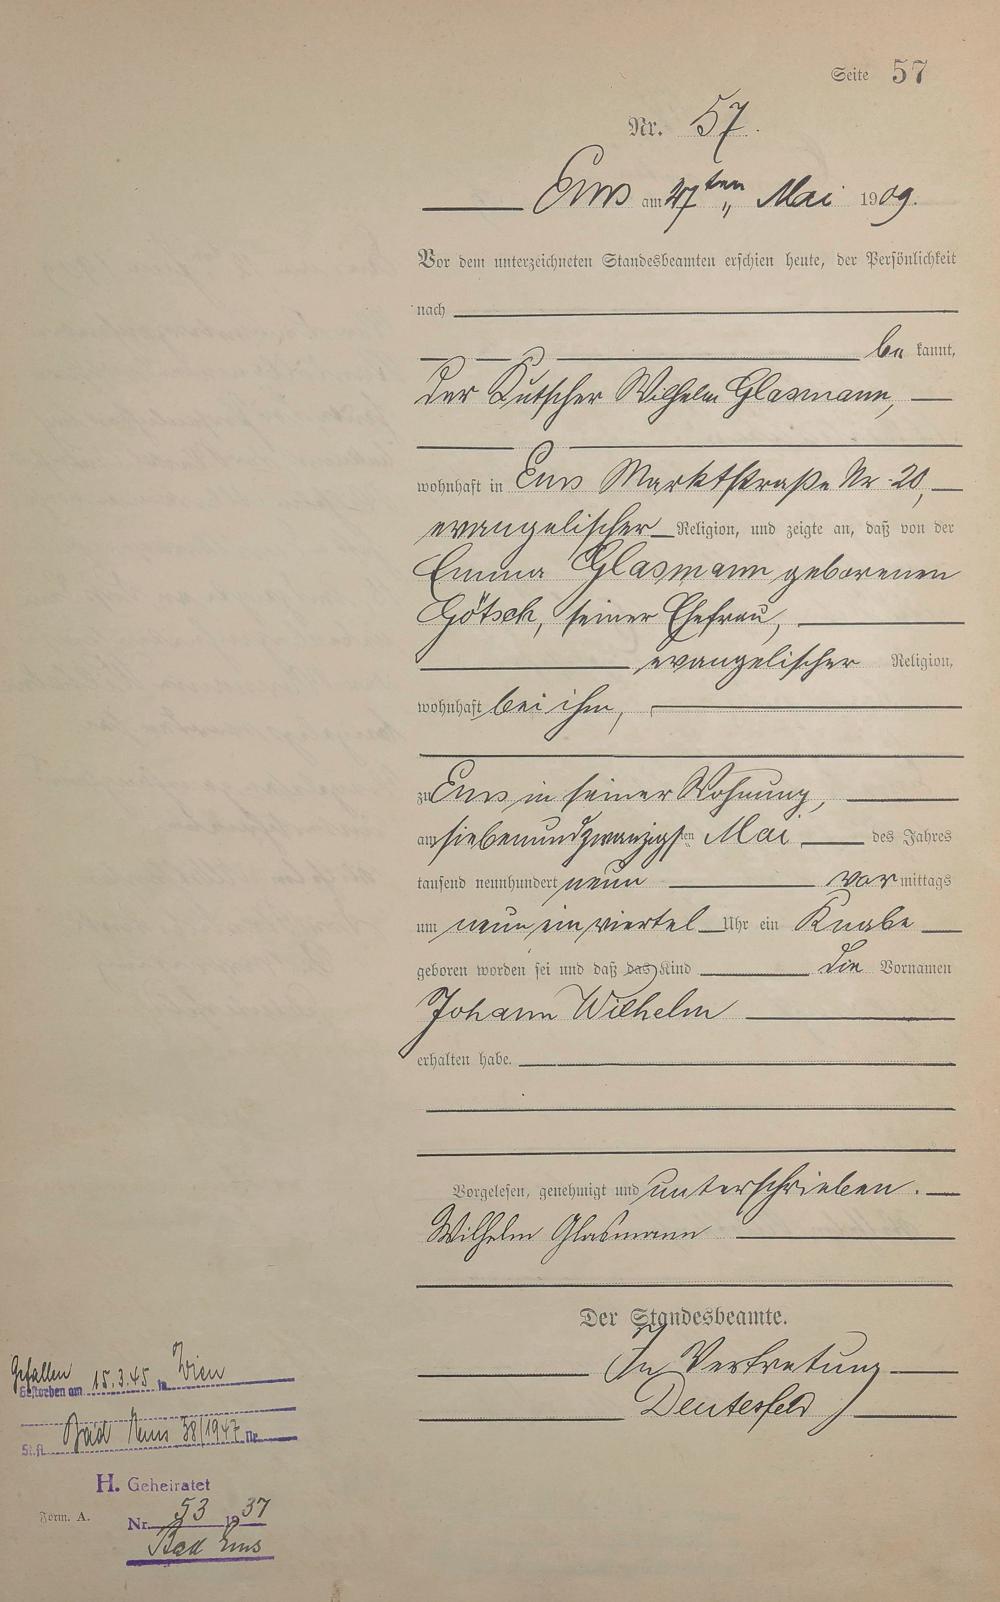 Seite 57
Nr. 57.
Ems am 27ten Mai 1909.
Vor dem unterzeichneten Standesbeamten erschien heute, der Persönlichkeit
nach
be kannt,
der Kutscher Wilhelm Glasmann,
wohnhaft in Ems Marktstraße Nr. 20,
evangelischer Religion, und zeigte an, daß von der
Emma Glasmann geborenen
Götsch, seiner Ehefrau,
evangelischer Religion,
wohnhaft bei ihm,
zu Ems in seiner Wohnung,
am siebenundzwanzigsten Mai des Jahres
tausend neunhundert neun vor mittags
um neun ein viertel Uhr ein Knabe
geboren worden sei und daß das Kind die Vornamen
Johann Wilhelm
erhalten habe.
Vorgelesen, genehmigt und unterschrieben.
Wilhelm Glasmann
Der Standesbeamte.
In Vertretung
Deutesfeld
Gefallen
Gestorben am 15.3.45 in Wien
St.A. Bad Ems 38/1947 Nr.
H. Geheiratet
Form. A.
Nr. 53 1937
Bad Ems